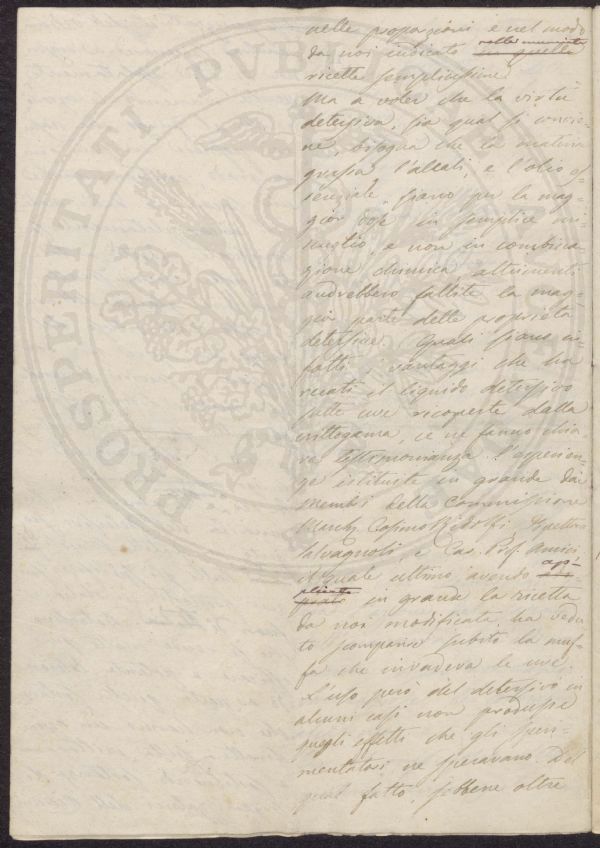 nelle proporzioni e nel modo
da noi indicato nella mentovata in quella
ricetta semplicissima.
Ma a voler che la virtù
detersiva, sia qual si convie=
ne, bisogna che la materia
grassa l'alcali, e l'olio es=
senziale, siano per la mag=
gior dose in semplice mi=
scuglio, e non in combina
zione chimica altrimenti
andrebbero fallite la mag=
gior parte delle proprietà
detersive. Quali siano in
fatti i vantaggi che ha
recati il liquido detersivo
sulle uve ricoperte dalla
crittogama, ce ne fanno chia
ra testimonianza l'esperien=
ze istituite in grande dai
membri della Commissione
March. Cosimo Ridolfi,
Salvagnoli, e Cav. Prof. Amici
il quale ultimo avendo ap=
plicata in grande la ricetta
da noi modificata, ha vedu
to scomparire subito la muf=
fa che invadeva le uve.
L'uso però del detersivo in
alcuni casi non produsse
quegli effetti che gli speri=
mentatori ne speravano. Del
qual fatto, sebbene oltre
PROSPERITATI PVBLICAE